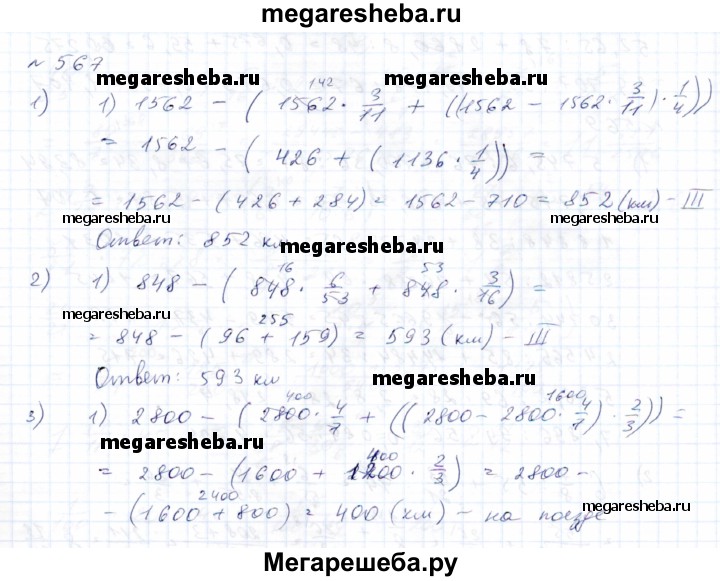 megaresheba.ru
№ 567
megaresheba.ru megaresheba.ru
142
1) 1) 1562 - ( 1562 · 3/11 + ((1562 - 1562 · 3/11) · 1/4))
= 1562 - ( 426 + ( 1136 · 1/4)) =
= 1562 - (426 + 284) = 1562 - 710 = 852 (км) - III
megaresheba.ru megaresheba.ru
Ответ: 852 км
megaresheba.ru
16 53
2) 1) 848 - ( 848 · 6/53 + 848 · 3/16) =
255
= 848 - (96 + 159) = 593 (км) - III
Ответ: 593 км
megaresheba.ru
400 1600
3) 1) 2800 - ( 2800 · 4/7 + (( 2800 - 2800 · 4/7) · 2/3)) =
megaresheba.ru
400
= 2800 - (1600 + 1200 · 2/3) = 2800 -
2400
- (1600 + 800) = 400 (км) - на поезде
megaresheba.ru
Мегарешеба.ру